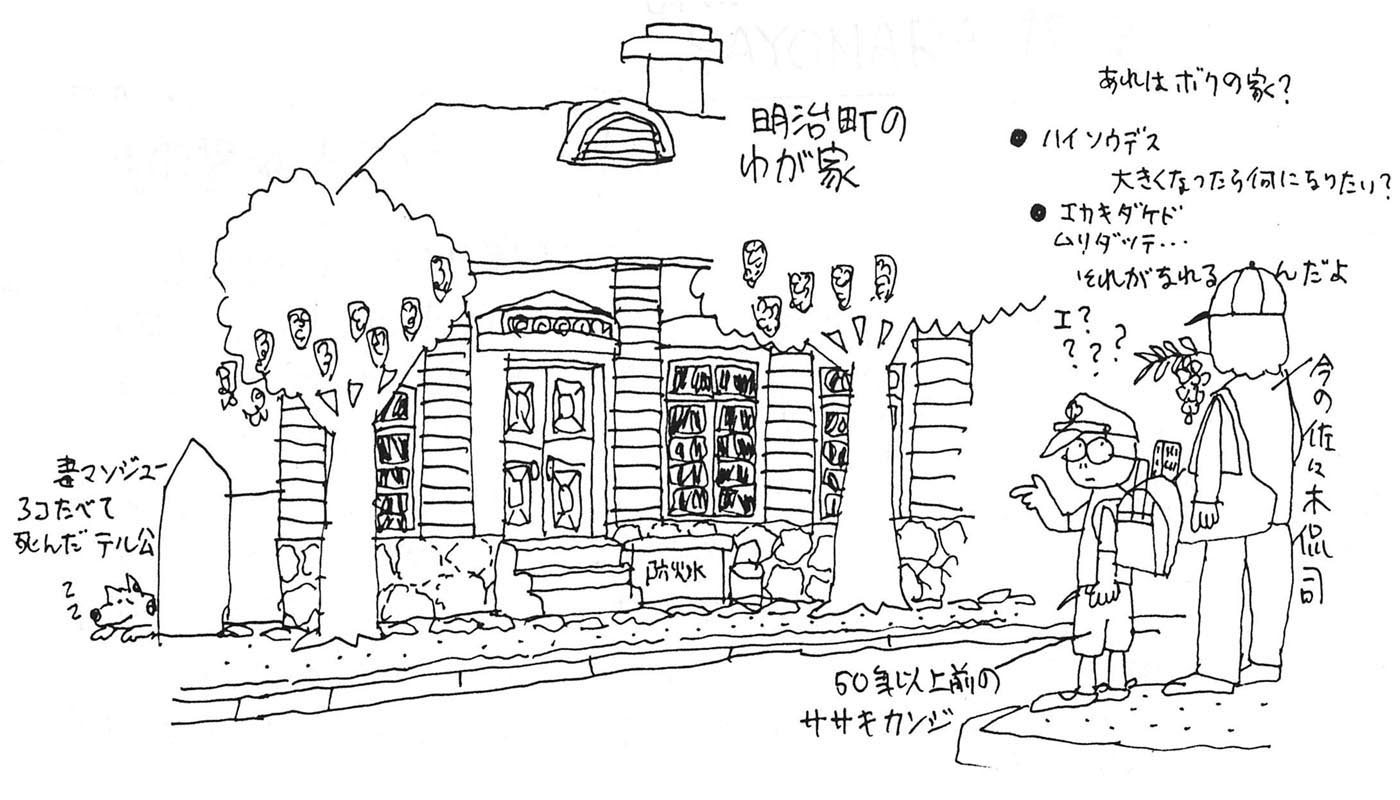 明治町の
わが家
あれはボクの家?
● ハイソウデス
大きくなったら何になりたい?
● エカキダケド
ムリダッテ・・・
それがなれるんだよ
エ?
? ? ?
今の佐々木侃司
毒マンジュー
3コたべて
死んだテル公
防火水
50年以上前の
ササキカンジ